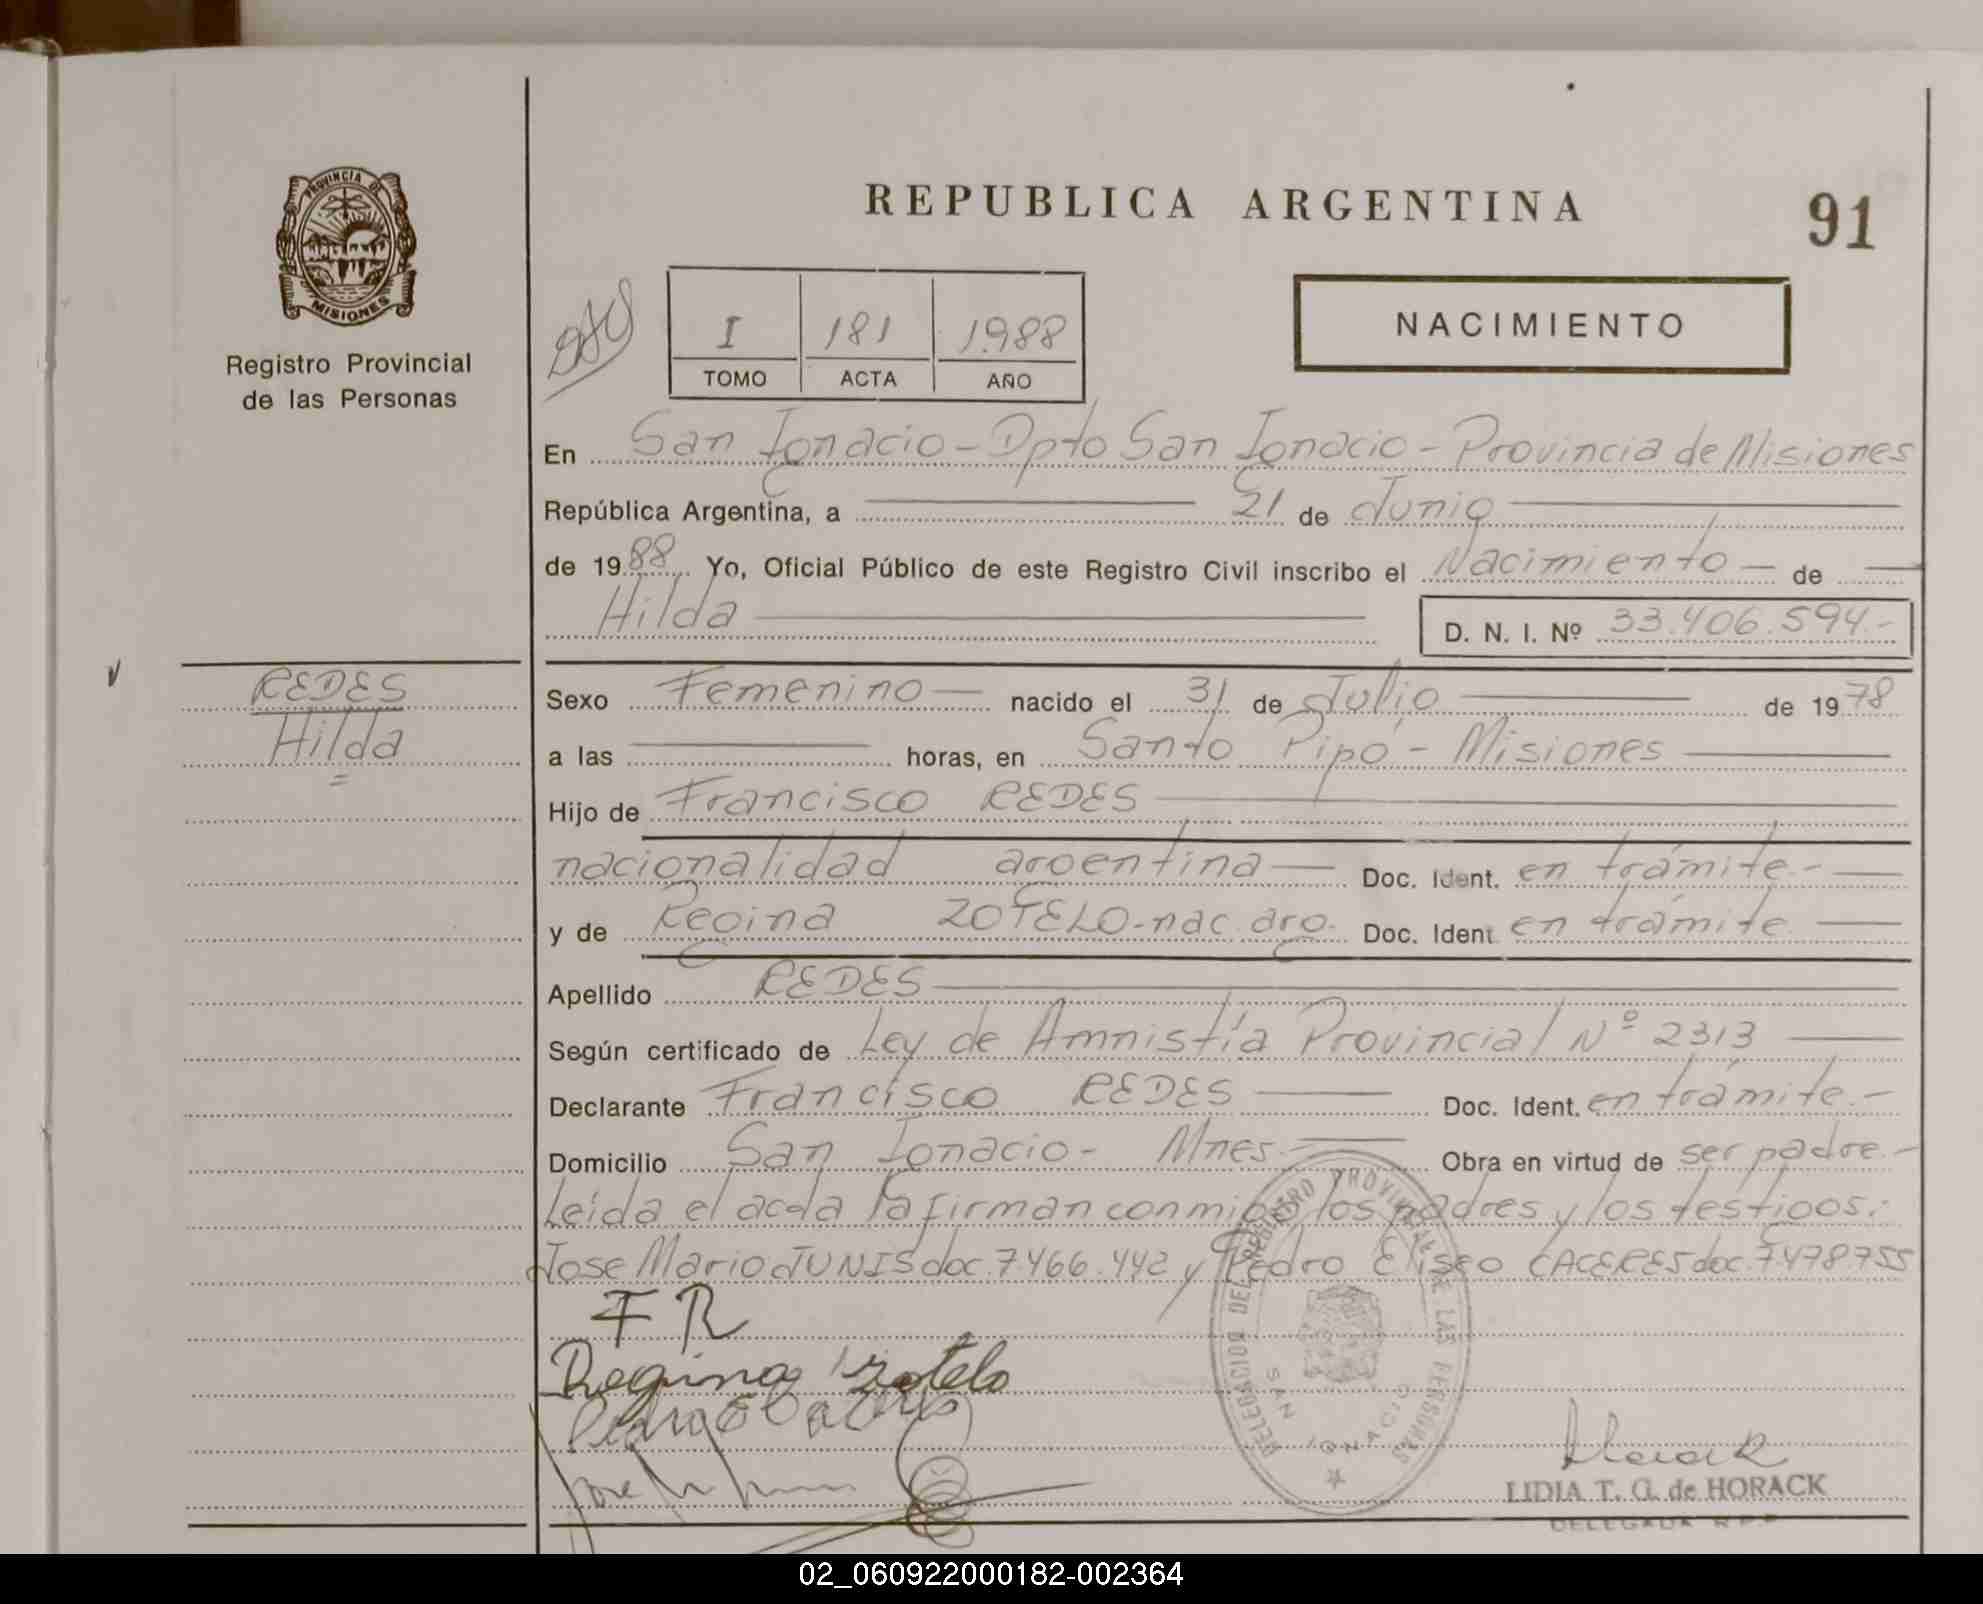 PROVINCIA DE
MISIONES
Registro Provincial
de las Personas
REPUBLICA ARGENTINA
91
I 181 1.988
TOMO ACTA AÑO
NACIMIENTO
En San Ignacio - Dpto San Ignacio - Provincia de Misiones
República Argentina, a 21 de Junio
de 1988 Yo, Oficial Público de este Registro Civil inscribo el Nacimiento de
Hilda
D. N. I. Nº 33.406.594.-
REDES
Hilda
Sexo Femenino nacido el 31 de Julio de 1978
a las horas, en Santo Pipó - Misiones
Hijo de Francisco REDES
nacionalidad argentina Doc. Ident. en trámite.-
y de Regina ZOTELO-nac. arg. Doc. Ident en trámite.
Apellido REDES
Según certificado de Ley de Amnistía Provincial Nº 2313
Declarante Francisco REDES Doc. Ident. en trámite.-
Domicilio San Ignacio - Mnes.- Obra en virtud de ser padre.-
Leída el acta la firman conmigo los padres y los testigos:
Jose Mario JUNIS doc. 7.466.442 y Pedro Eliseo CACERES doc. 7.478.755
F R
Regina zotelo
Pedro E Caceres
Jose M
DELEGACION DEL REGISTRO PROVINCIAL DE LAS PERSONAS
SAN IGNACIO
Horack
LIDIA T. G. de HORACK
DELEGADA R.P.P.
02_060922000182-002364